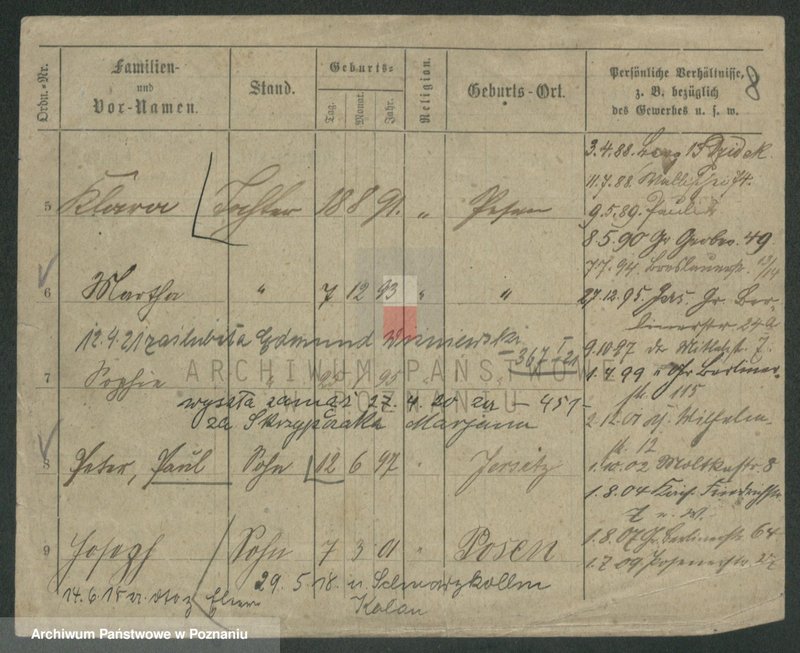 Ordn.-Nr.
Familien-
und
Vor-Namen.
Stand.
Geburts-
Tag.
Monat.
Jahr.
Religion.
Geburts-Ort.
Persönliche Verhältnisse,
z. B. bezüglich
des Gewerbes u. s. w.
8
3.4.88.
11.7.88.
5 Klara Tochter 18 8 91. " Posen
9.5.89.
8.5.90 Gr Gerber. 49
7.7.94. Breslauerstr. 13/14
6 Martha " 7 12 93 " "
27.12.95 Jers. Gr. Ber-
linerstr 24a
12.4.21 zaślubiła Edmund Wiśniewski
-367 I-21
9.10.97
7 Sophie " 95 " "
1.4.99 " Gr Berliner-
str. 115
wyszła zamąż 27.4.20 - 451-
za Skrzypczaka Marjana
2.12.01 Wilhelm-
str. 12
8 Peter, Paul Sohn 12 6 97 " Jersitz
1.10.02 Moltkestr. 8
1.8.04 Friedrichstr.
9 Joseph Sohn 7 3 01 " Posen
1.8.07 Gr. Berlinerstr 64
1.7.09 Posenerstr 27
14.6.18
29.5.18. n Schwarzkollm
Kalau
ARCHIWUM PAŃSTWOWE
W POZNANIU
Archiwum Państwowe w Poznaniu